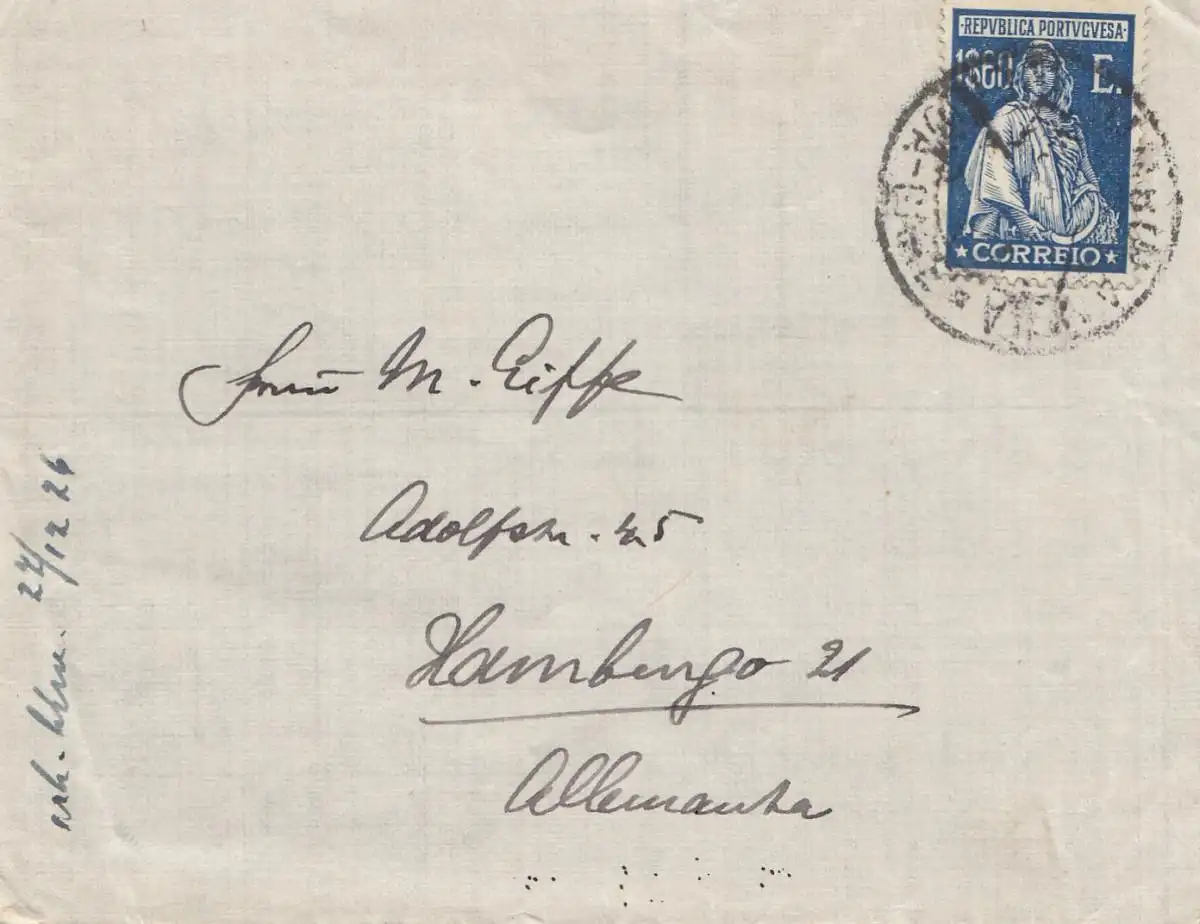 REPVBLICA PORTVGVESA
1$60 E.
CORREIO
M. Eiffe
Adolfstr. 45
Hamburgo 21
Allemanha
27/12 26